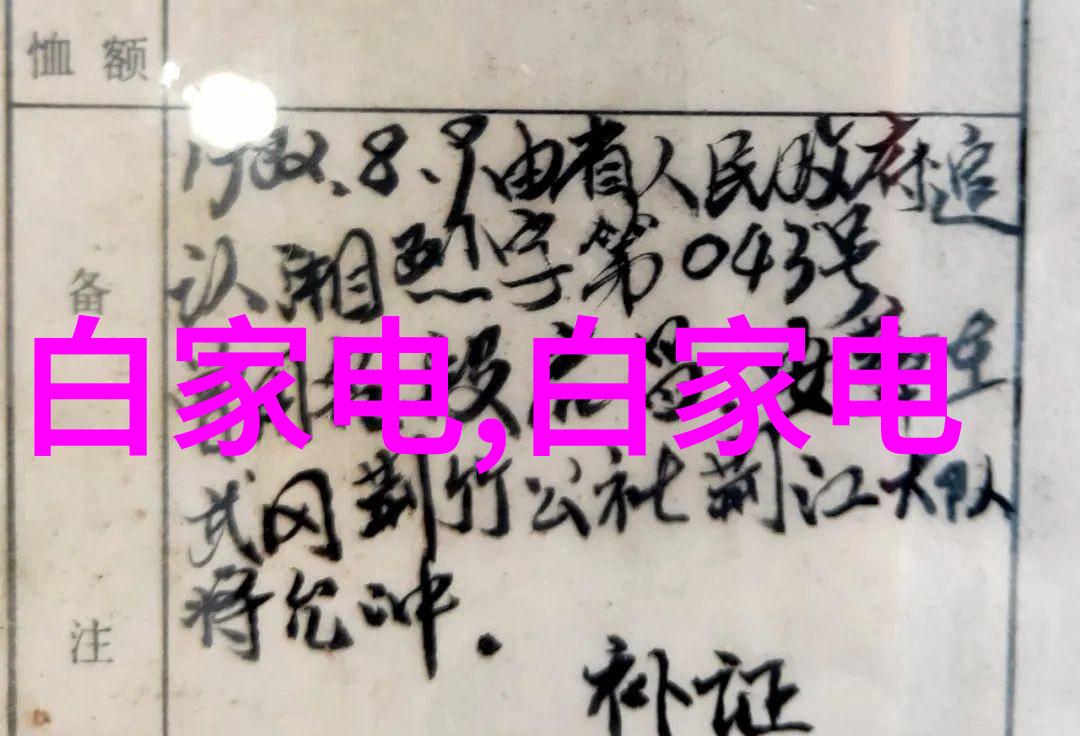 恤额
1982.8.9由省人民政府追
认湘烈字第043号
备
白家电,白家电
武冈荆竹公社荆江大队
蒋允冲.
注
补证